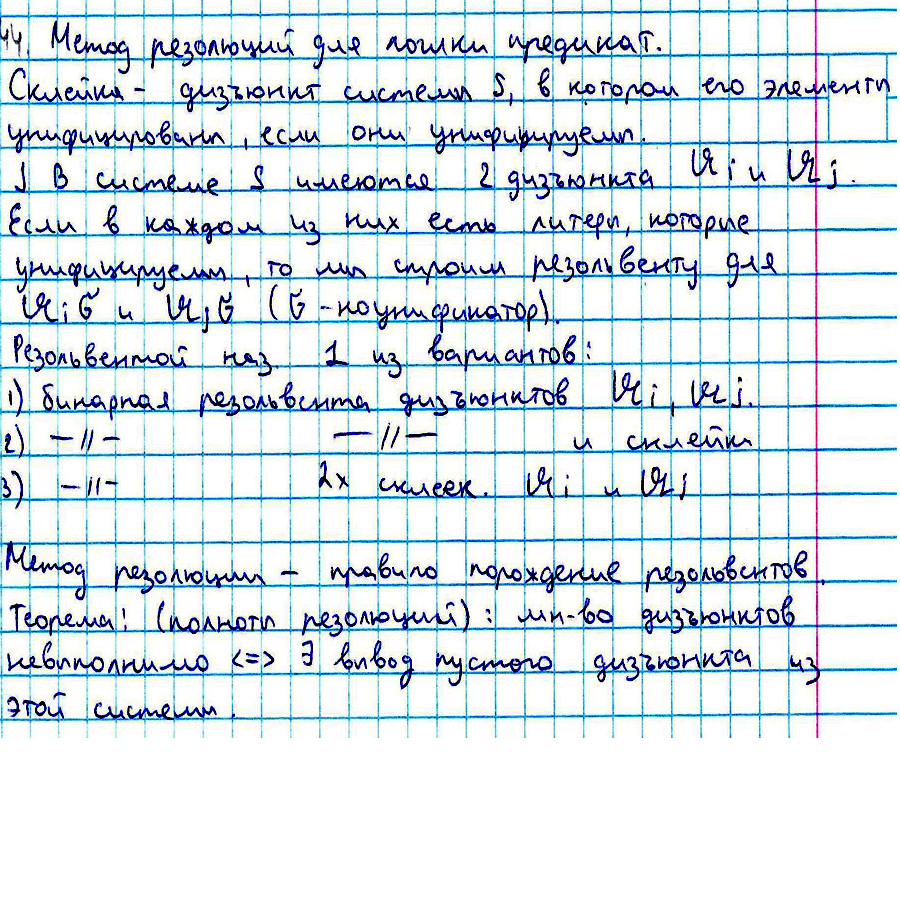 44. Метод резолюций для логики предикат.
Склейка - дизъюнкт системы S, в котором его элементы
унифицированы, если они унифицируемы.
] В системе S имеются 2 дизъюнкта 𝔄i и 𝔄j.
Если в каждом из них есть литеры, которые
унифицируемы, то мы строим резольвенту для
𝔄iσ и 𝔄jσ (σ - ноунификатор).
Резольвентой наз. 1 из вариантов:
1) бинарная резольвента дизъюнктов 𝔄i, 𝔄j.
2) —//— —//— и склейки
3) —//— 2х склеек. 𝔄i и 𝔄j
Метод резолюции - правило порождение резольвентов.
Теорема! (полноты резолюций): мн-во дизъюнктов
невыполнимо <=> ∃ вывод пустого дизъюнкта из
этой системы.